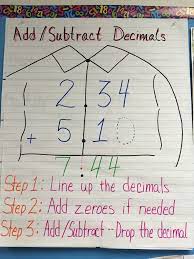 Add/Subtract Decimals
2.34
+ 5.10
7.44
Step 1: Line up the decimals
Step 2: Add zeroes if needed
Step 3: Add/Subtract - Drop the decimal